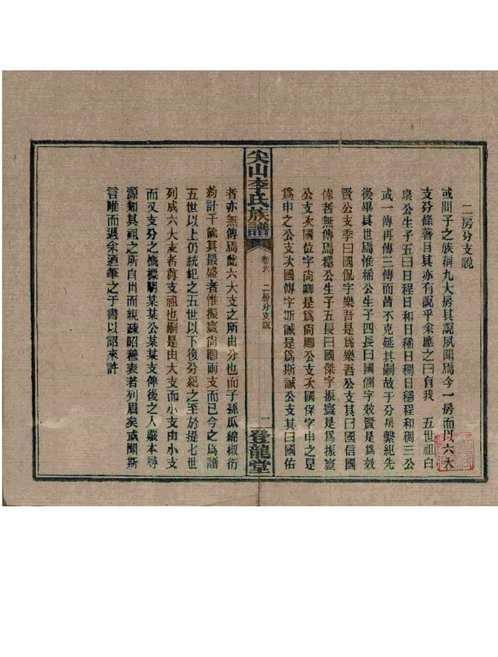 二房分支說
或問于之族稱九大房其說夙聞焉今一房而以六大
支分條著目其亦有說乎余應之曰自我 五世祖白
泉公生子五曰日程日和日稀日穩程和稠三公
或一傳再傳三傳而皆不克延其嗣故于分房槩紀先
後畢其世焉惟稀公生子四長曰國儒字效賢是爲效
賢公支季曰國侃字樂吾是爲樂吾公支其曰國信國
倖者無傳焉穩公生子五長曰國傑字振寰是爲振寰
公支次國位字尚卿是爲尚卿公支次國保字申之是
爲申之公支次國傳字斯誠是爲斯誠公支其曰國佑
尖山李氏族譜
卷六 二房分支說
一 登龍堂
者亦無傳焉此六大支之所由分也而子孫瓜綿椒衍
約計千餘其最盛者惟振寰尚卿兩支而已今之爲譜
五世以上仍統紀之五世以下後分紀之至於提七世
列成六大支者尊支祖也嗣是由大支而小支由小支
而又支分之爲標明某某公某某支俾後之人嚴本尋
源知其祖之所自出而親疎昭穆衷者列眉矣或聞斯
言唯而退余遂筆之于書以詔來許